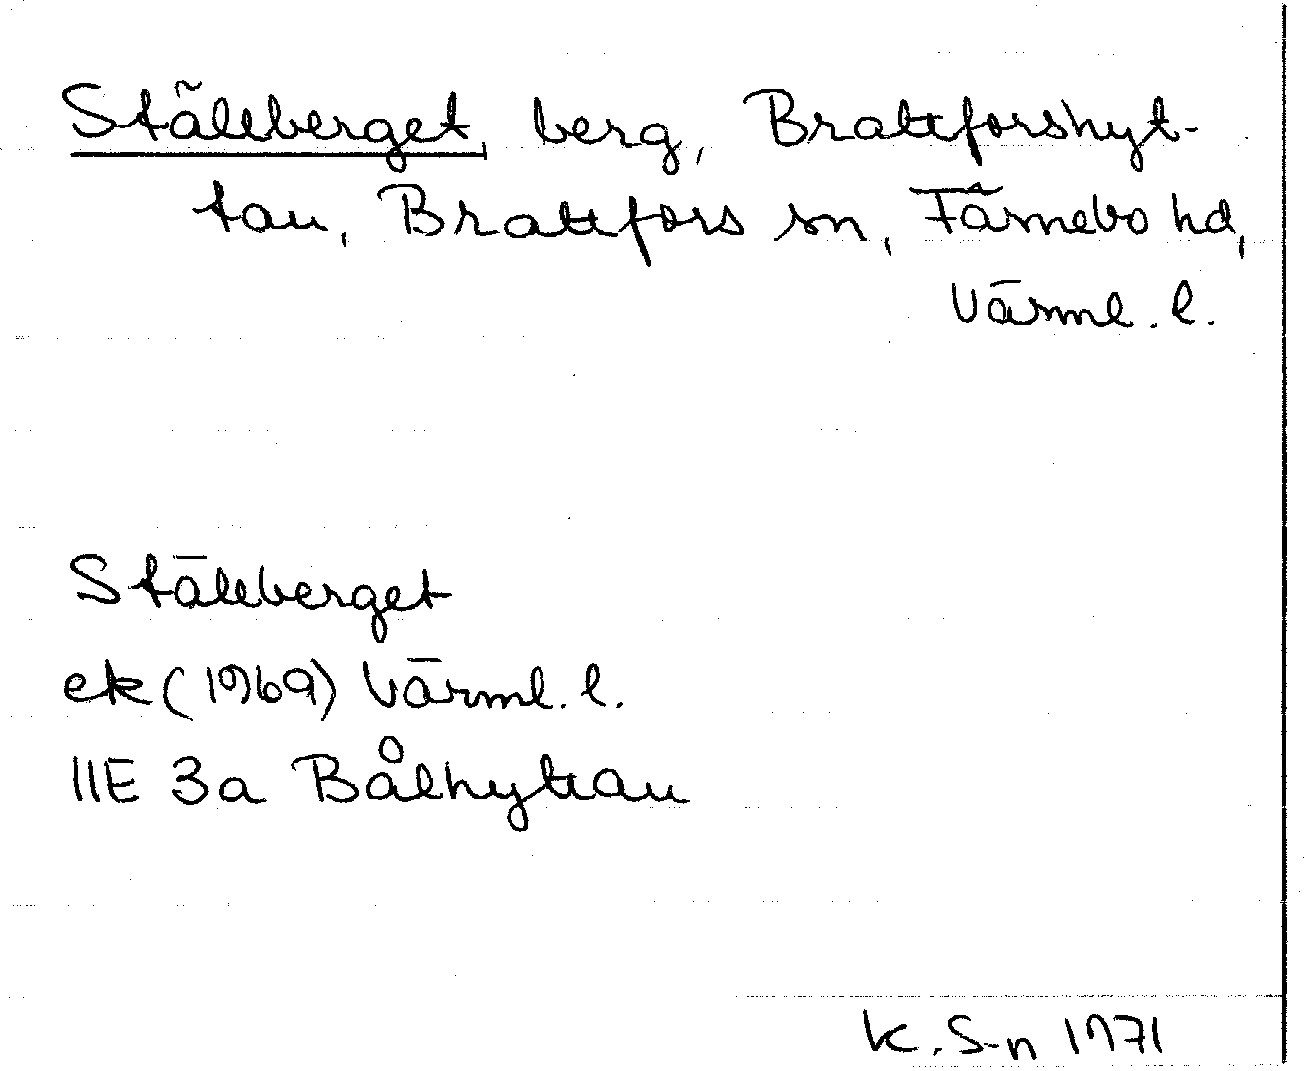 Ställberget, berg, Brattforshyt-
tan, Brattfors sn, Färnebo hd,
Värml. l.
Ställberget
ek (1969) Värml. l.
11E 3a Bålhyttan
K. S-n 1971